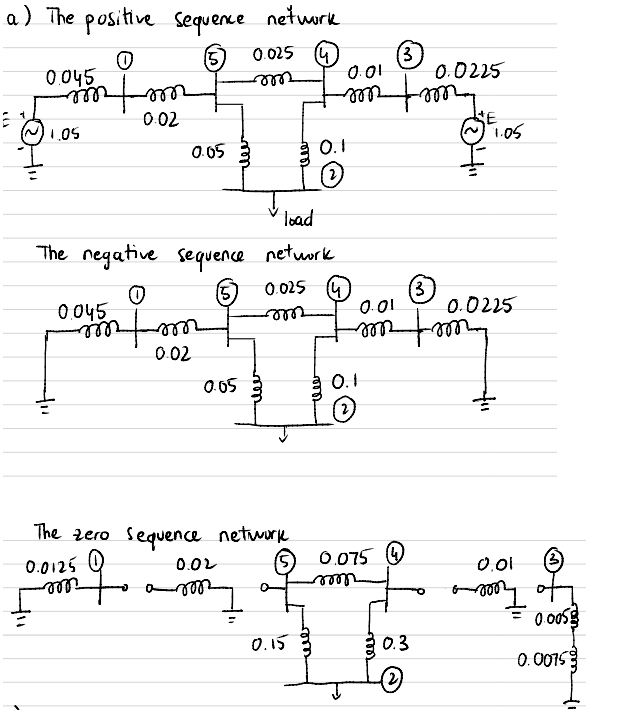 a) The positive sequence network
0.045 ① 0.02 ⑤ 0.025 ④ 0.01 ③ 0.0225
E + 1.05 - 0.05 0.1 ② +E 1.05 -
load
The negative sequence network
0.045 ① 0.02 ⑤ 0.025 ④ 0.01 ③ 0.0225
0.05 0.1 ②
The zero sequence network
0.0125 ① 0.02 ⑤ 0.075 ④ 0.01 ③
0.15 0.3 0.005
② 0.0075